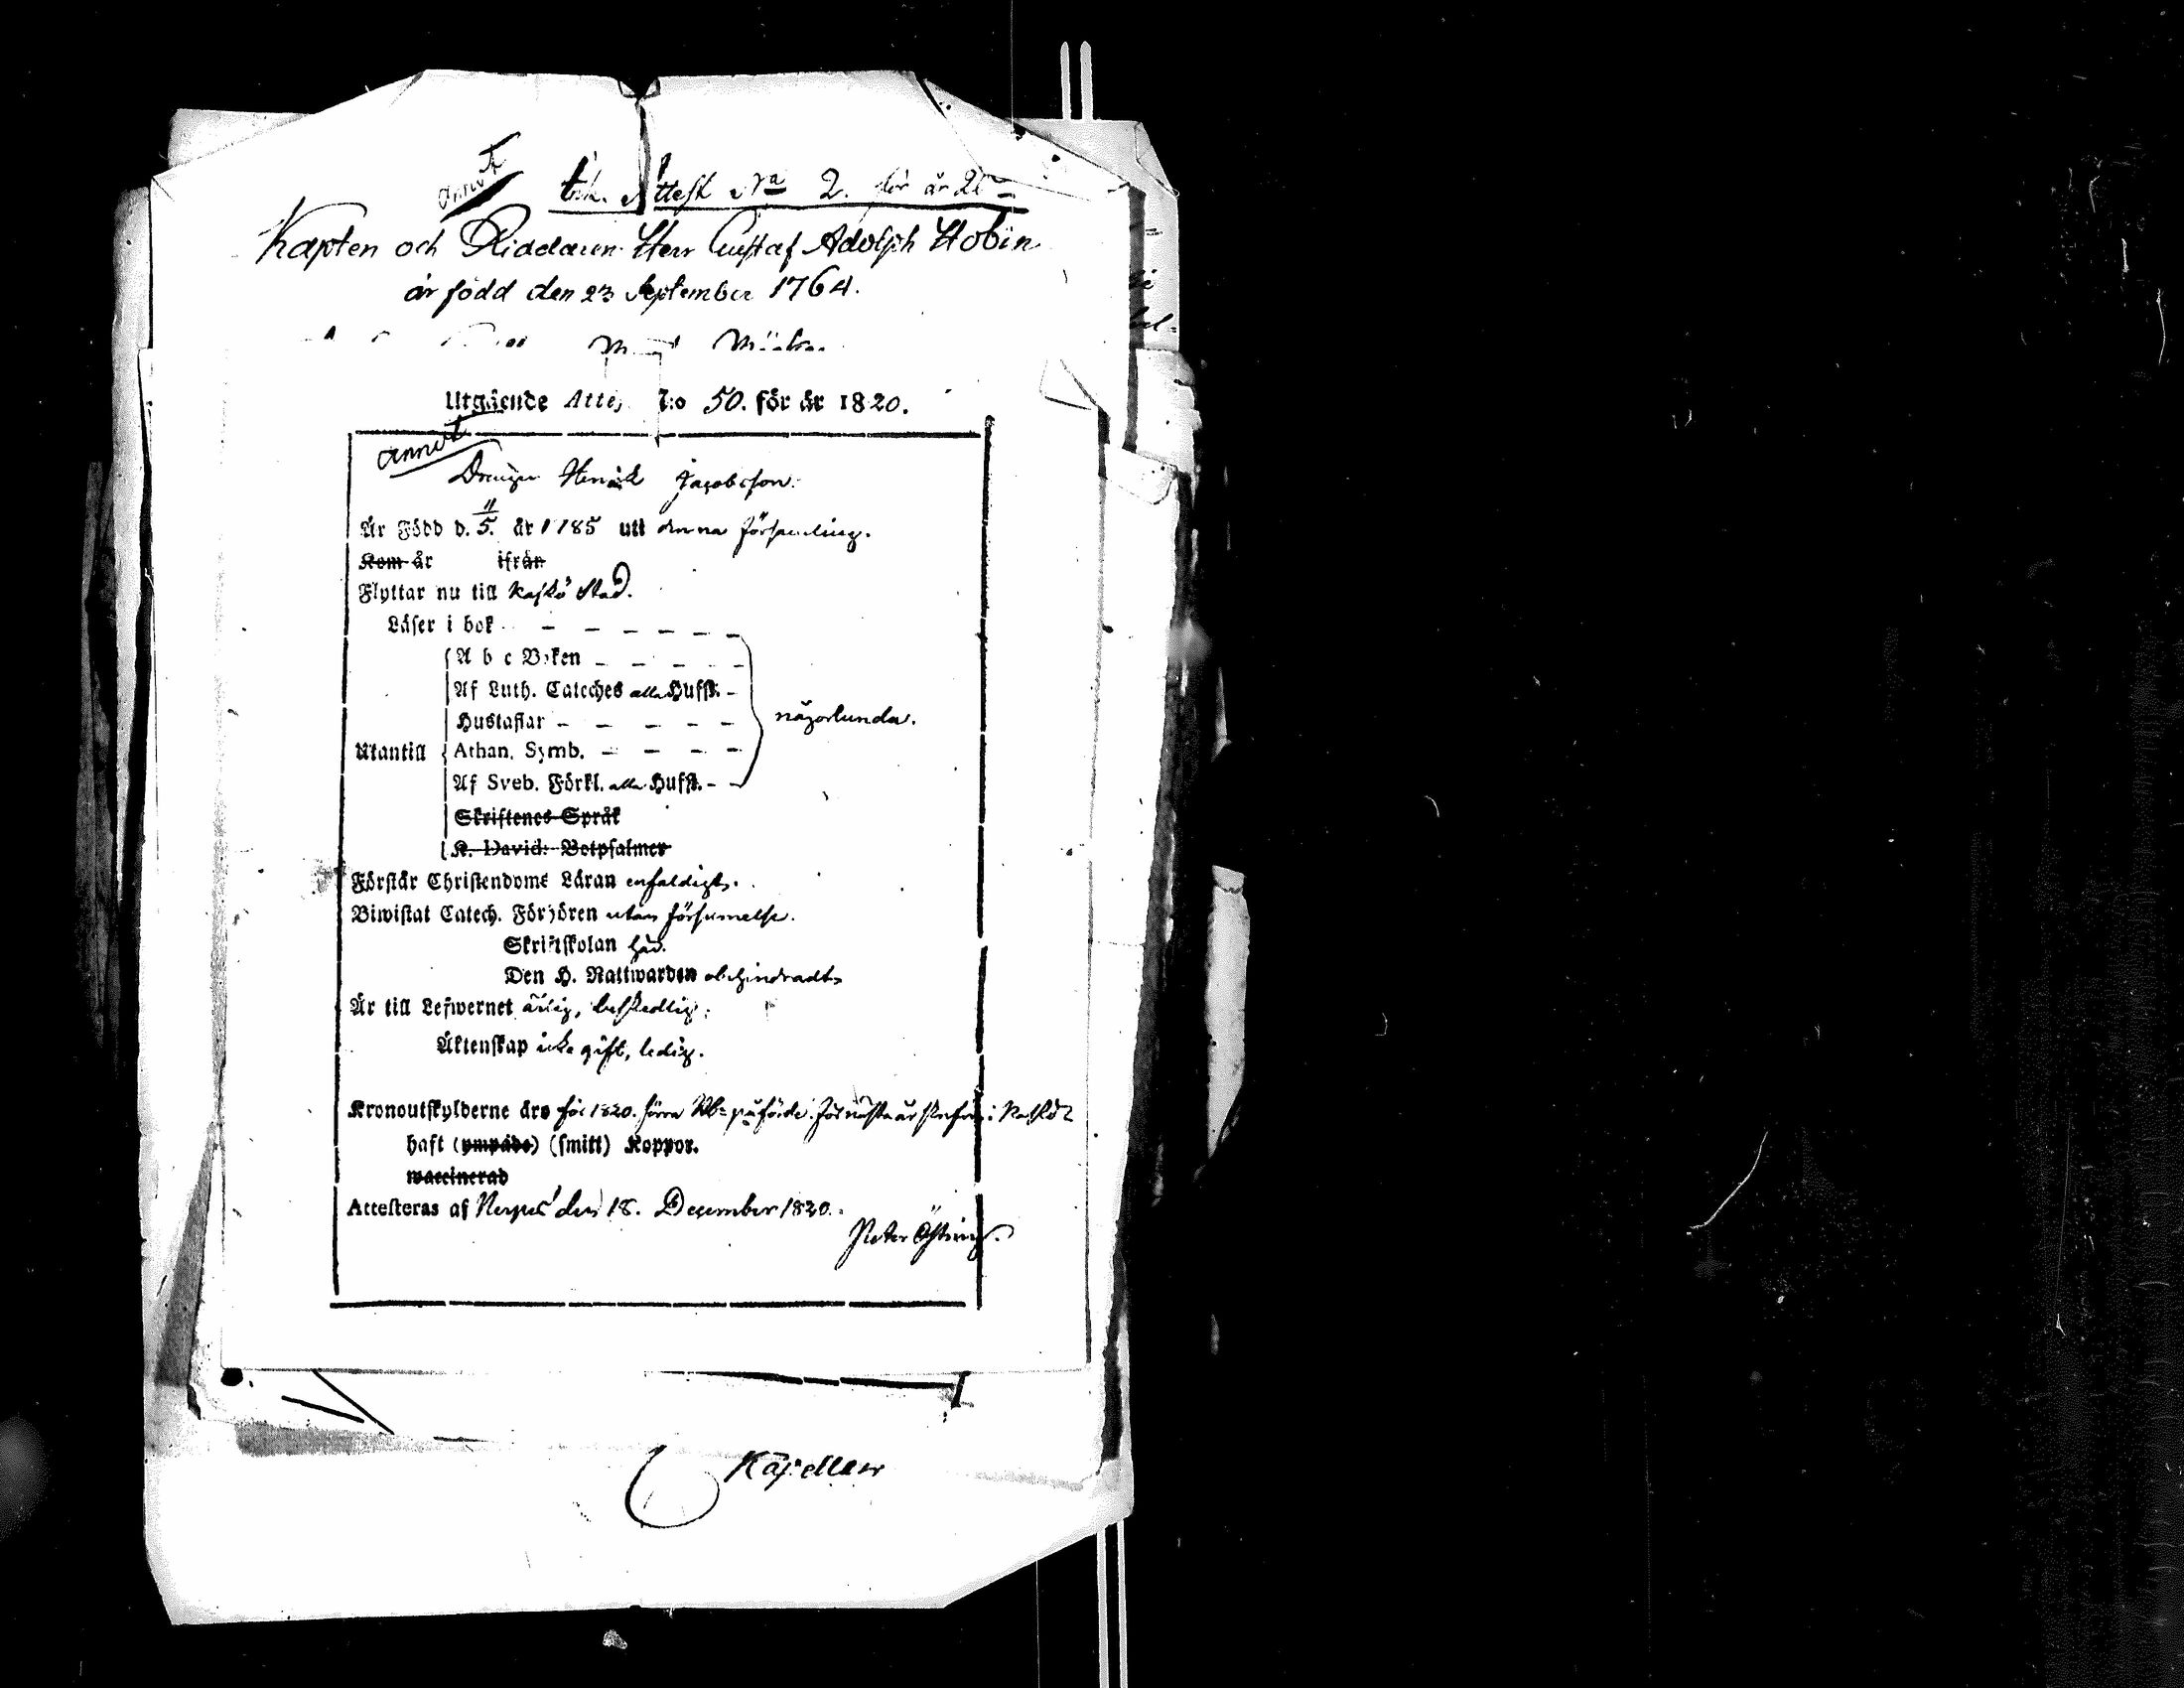 annot
Attest No 2. för år 20
Kapten och Riddaren Herr Gustaf Adolph Hobin
är född den 23 September 1764.
Utgående Atte 50. för år 1820.
annot
Drengen Henrik Jacobsson.
Är Född d. 11/5. år 1785 utI denna församling.
Kom år ifrån
Flyttar nu till Kaskö Stad.
Läser i bok
A b c Boken
Af Luth. Cateches alla Hufst.
Hustaflar
någorlunda.
Utantill
Athan. Symb.
Af Sveb. Förkl. alla Hufst.
Skriftenes Språk
K. David: Botpsalmer
Förstår Christendoms Läran enfaldigt.
Biwistat Catech. Förhören utan försumelse.
Skriftskolan
Den H. Nattwarden obehindradt
Är till Lefwernet ärlig, beskedlig.
Äktenskap icke gift, ledig.
Kronoutskylderne års för 1820. påförde. för nästa år i Kaskö
haft (ympade) (smitt) Koppor.
waccinerad
Attesteras af Nerpes den 18. December 1820.
Peter
Kapellan